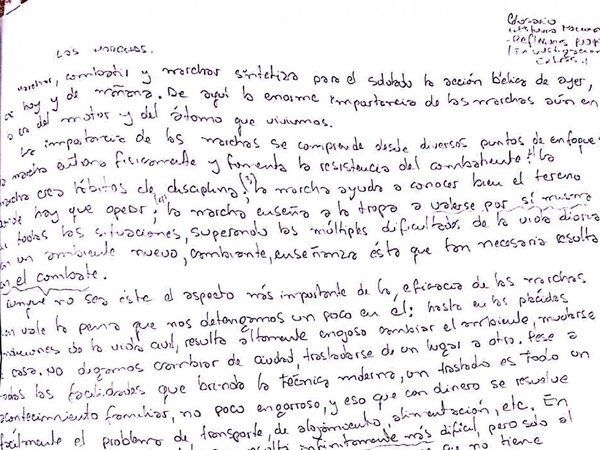 Glosario
LAS MARCHAS.
Marchar, combatir y marchar sintetiza para el soldado la acción bélica de ayer,
de hoy y de mañana. De aquí la enorme importancia de las marchas aún en
era del motor y del átomo que vivimos.
La importancia de las marchas se comprende desde diversos puntos de enfoque:
la marcha entrena físicamente y fomenta la resistencia del combatiente; la
marcha crea hábitos de disciplina; la marcha ayuda a conocer bien el terreno
donde hay que operar; la marcha enseña a la tropa a valerse por sí misma
en todas las situaciones, superando las múltiples dificultades de la vida diaria
en un ambiente nuevo, cambiante, enseñanza ésta que tan necesaria resulta
en el combate.
Aunque no sea éste el aspecto más importante de la eficacia de las marchas
vale la pena que nos detengamos un poco en él: hasta en las plácidas
condiciones de la vida civil, resulta altamente engoroso cambiar el ambiente, mudarse
casa. No digamos cambiar de ciudad, trasladarse de un lugar a otro. Pese a
todas las facilidades que brinda la técnica moderna, un traslado es todo un
acontecimiento familiar, no poco engorroso, y eso que con dinero se resuelve
fácilmente el problema de transporte, de alojamiento, alimentación, etc. En
resulta infinitamente más difícil, pero solo al
que no tiene